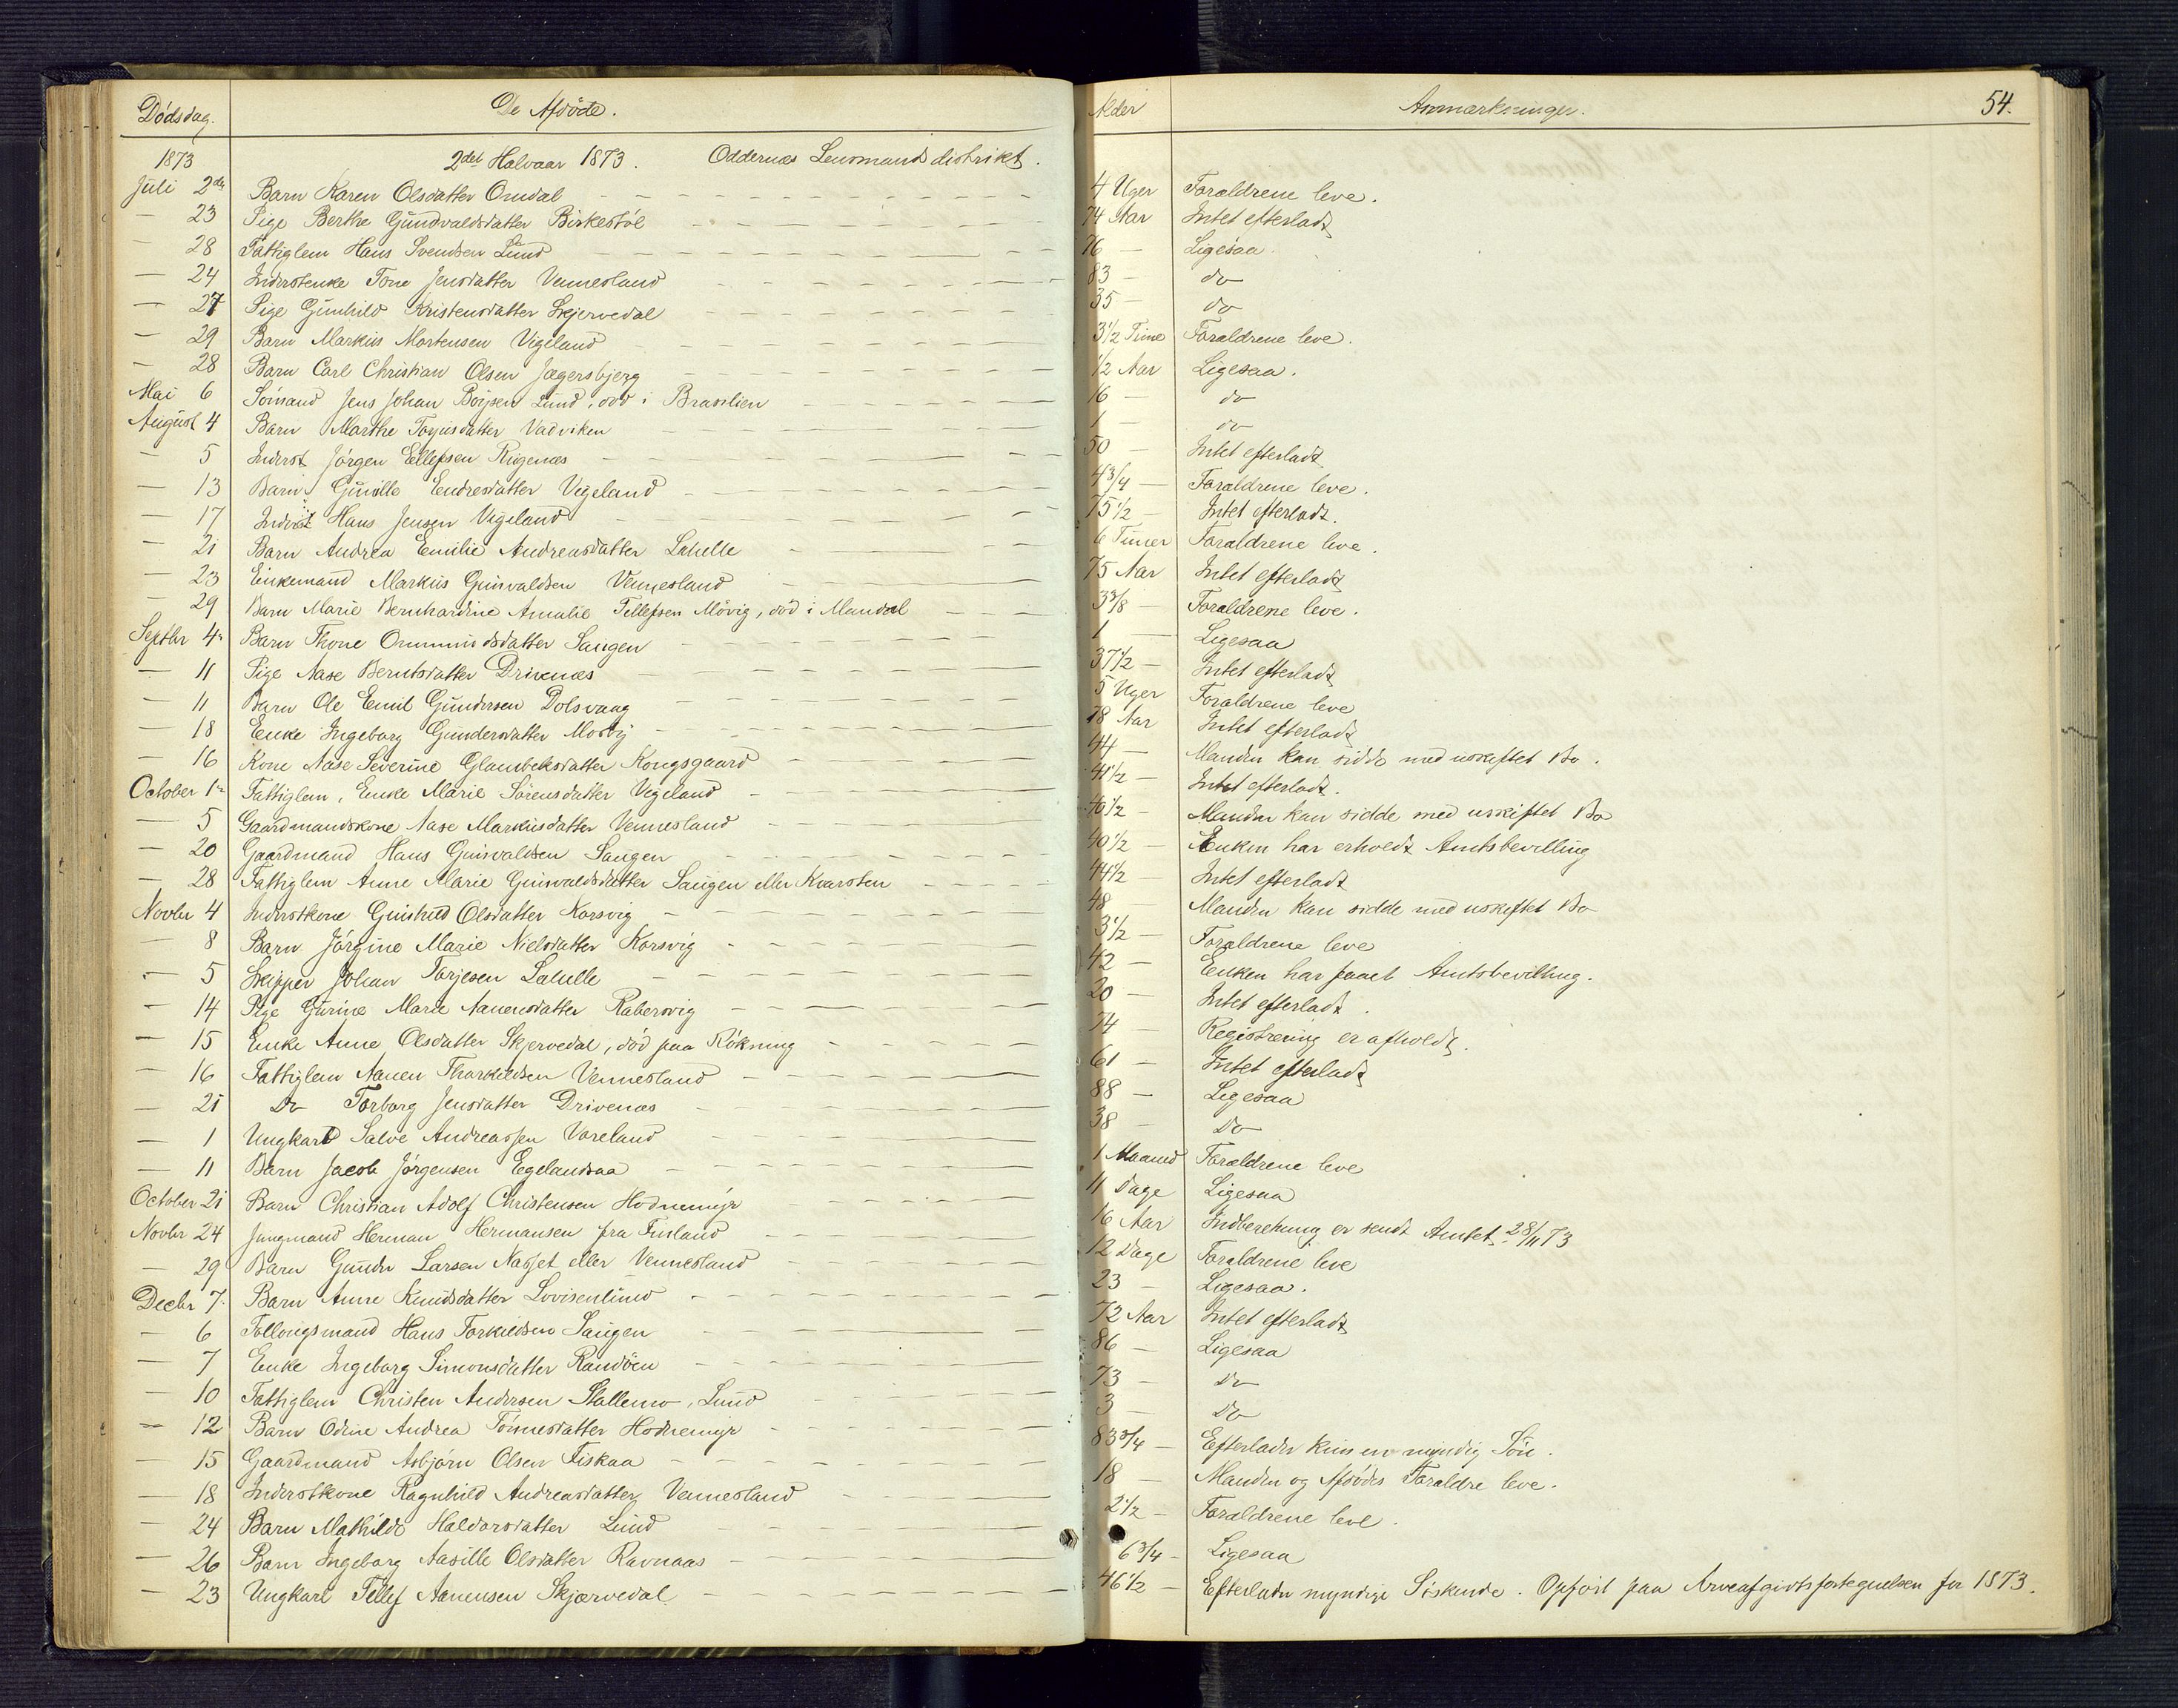 Dödsdag. De Afdöde. Alder Anmærkninger. 54.
1873 2det Halvaar 1873. Oddernæs Lensmandsdistrikt.
Juli 2den Barn Karen Olsdatter Omdal 4 Uger Forældrene leve.
— 23 Pige Berthe Gundvaldsdatter Birkestøl 74 Aar Intet efterladt
— 28 Fattiglem Hans Svendsen Lund 76 — Ligesaa
— 24 Inderstenke Tone Jensdatter Vennesland 83 — do
— 27 Pige Gunhild Kristensdatter Skjervedal 35 — do
— 29 Barn Markus Mortensen Vigeland 3½ Time Forældrene leve.
— 28 Barn Carl Christian Olsen Jægersbjerg ½ Aar Ligesaa.
Mai 6 Sömand Jens Johan Boijsen Lund, död i Brasilien 16 — do
August 4 Barn Marthe Tagusdatter Vadviken 1 — do
— 5 Inderst Jörgen Ellefsen Rigenæs 50 — Intet efterladt
— 13 Barn Gunille Endresdatter Vigeland 4¾ — Forældrene leve.
— 17 Inderst Hans Jensen Vigeland 75½ — Intet efterladt.
— 21 Barn Andrea Emilie Andreasdatter Lahelle 6 Timer Forældrene leve.
— 23 Enkemand Markus Gunvaldsen Vennesland 75 Aar Intet efterladt
— 29 Barn Marie Bernhardine Amalie Tellefsen Mövig, död i Mandal 3⅜ — Forældrene leve.
Septbr 4 Barn Thone Ommundsdatter Saugen 1 — Ligesaa
— 11 Pige Aase Berntsdatter Drivenæs 37½ — Intet efterladt
— 11 Barn Ole Emil Gundersen Dolsvaag 5 Uger Forældrene leve
— 18 Enke Ingeborg Gundersdatter Mosby 78 Aar Intet efterladt
— 16 Kone Aase Severine Glambeksdatter Kongsgaard 44 — Manden kan sidde med uskiftet Bo.
October 1 Fattiglem, Enke Marie Sörensdatter Vigeland 41½ — Intet efterladt.
— 5 Gaardmandskone Aase Markusdatter Vennesland 40½ — Manden kan sidde med uskiftet Bo
— 20 Gaardmand Hans Gunvaldsen Saugen 40½ — Enken har erholdt Amtsbevilling
— 28 Fattiglem Anne Marie Gunvaldsdatter Saugen eller Kvarsten 44½ — Intet efterladt
Novbr 4 Inderstkone Gunhild Olsdatter Korsvig 48 — Manden kan sidde med uskiftet Bo
— 8 Barn Jörgine Marie Nielsdatter Korsvig 3½ — Forældrene leve
— 5 Skipper Johan Torjesen Lahelle 42 — Enken har faaet Amtsbevilling.
— 14 Pige Gurine Marie Aanensdatter Rabersvig 20 — Intet efterladt.
— 15 Enke Anne Olsdatter Skjervedal, död paa Rökning 74 — Registrering er afholdt.
— 16 Fattiglem Aanen Tharkildsen Vennesland 61 — Intet efterladt
— 21 Do Torborg Jensdatter Drivenæs 88 — Ligesaa
— 1 Ungkarl Salve Andreassen Voreland 38 — Do
— 11 Barn Jacob Jörgensen Egelandsaa 1 Maaned Forældrene leve
October 21 Barn Christian Adolf Christensen Hodnemyr 11 Dage Ligesaa
Novbr 24 Jungmand Herman Hermansen fra Fusland 16 Aar Indberetning er sendt Amtet 28/11 73
— 29 Barn Gunder Larsen Næsset eller Vennesland 12 Dage Forældrene leve
Decbr 7. Barn Anne Knudsdatter Lovisenlund 23 — Ligesaa.
— 6 Follougsmand Hans Torkildsen Saugen 72 Aar Intet efterladt
— 7 Enke Ingeborg Simonsdatter Randöen 86 — Ligesaa
— 10 Fattiglem Christen Andersen Stallemo, Lund 73 — Do
— 12 Barn Odine Andrea Tönnesdatter Hodnemyr 3 — Do
— 15 Gaardmand Asbjörn Olsen Fiskaa 83¾ — Efterlader kun en myndig Sön.
— 18 Inderstkone Ragnhild Andreasdatter Vennesland 18 — Manden og Afdödes Forældre leve.
— 24 Barn Mathilde Haldorsdatter Lund 2½ — Forældrene leve.
— 26 Barn Ingeborg Aasille Olsdatter Ravnaas 6¾ — Ligesaa
— 23 Ungkarl Tellef Aanensen Skjærvedal 46½ — Efterlader myndige Söskende. Opfört paa Arveafgiftsfortegnelsen for 1873.